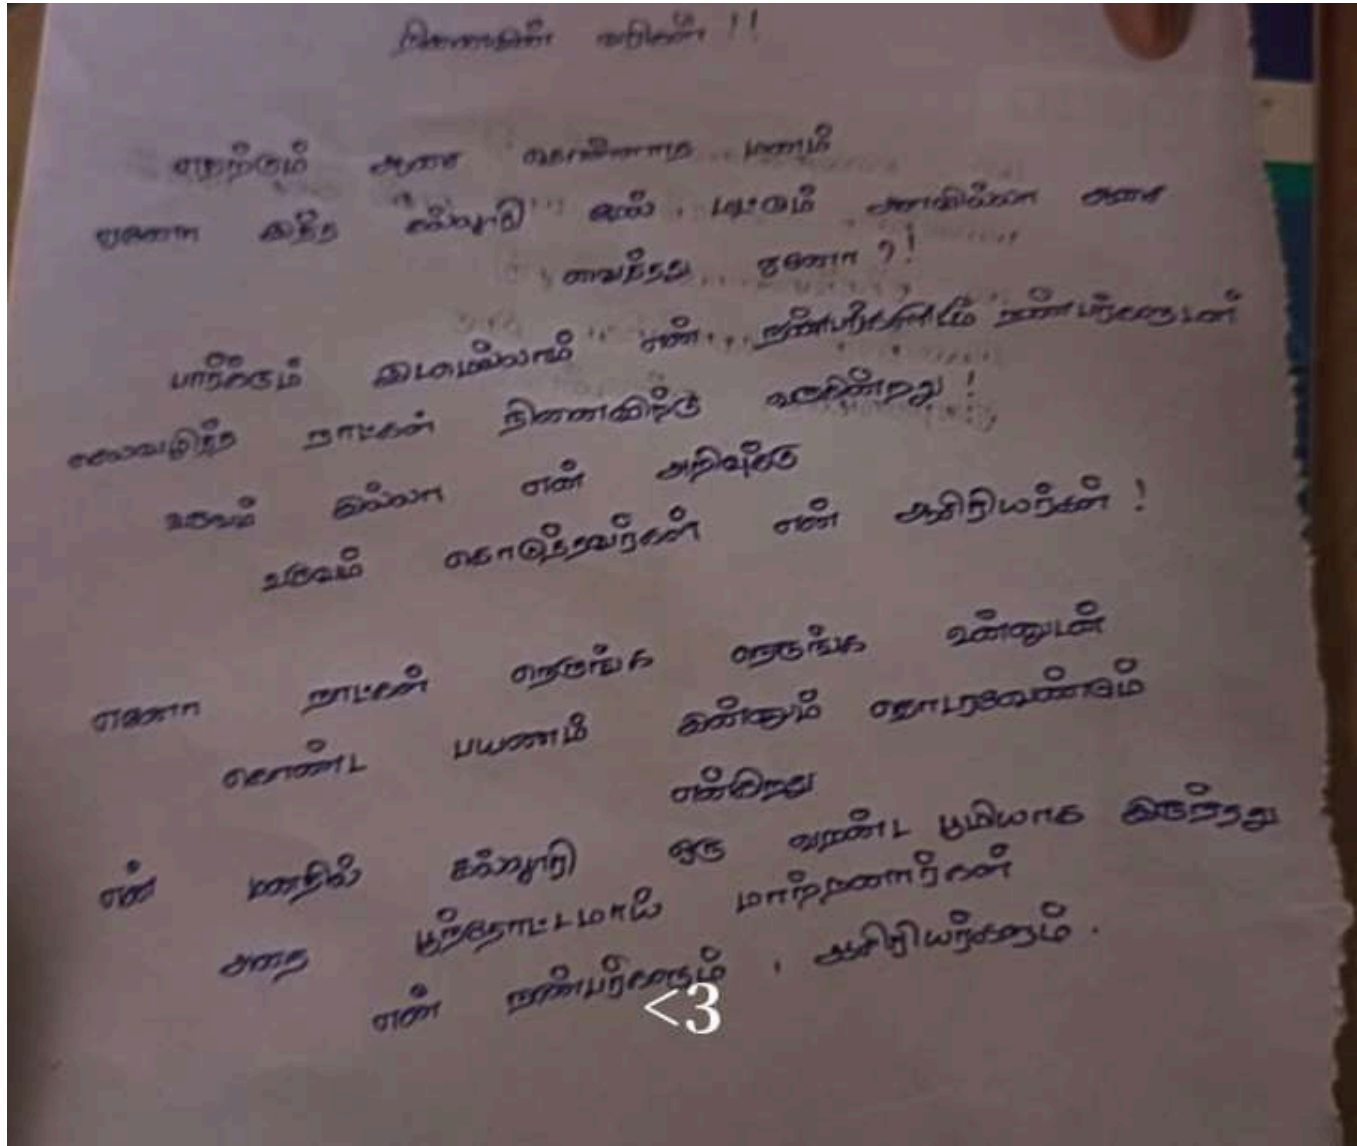 நினைவின் வரிகள் !!
எதற்கும் ஆசை கொள்ளாத மனம்
ஏனோ இந்த கல்லூரி மேல் மட்டும் அளவில்லா ஆசை
வைத்தது ஏனோ ?!
பார்க்கும் இடமெல்லாம் என் நண்பர்களிடம் நண்பர்களுடன்
செலவழித்த நாட்கள் நினைவிற்கு வருகின்றது !
உருவம் இல்லா என் அறிவுக்கு
உருவம் கொடுத்தவர்கள் என் ஆசிரியர்கள் !
ஏனோ நாட்கள் நெருங்க நெருங்க உன்னுடன்
கொண்ட பயணம் இன்னும் தொடரவேண்டும்
என்கிறது
என் மனதில் கல்லூரி ஒரு வறண்ட பூமியாக இருந்தது
அதை பூந்தோட்டமாய் மாற்றினார்கள்
என் நண்பர்களும் , ஆசிரியர்களும் .
<3